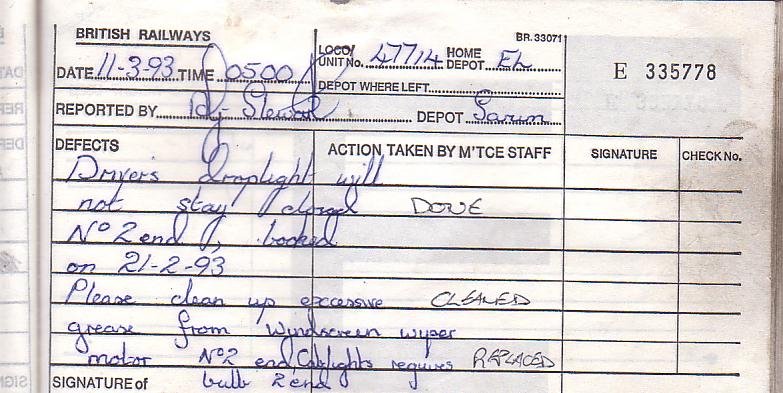 BRITISH RAILWAYS
BR. 33071
DATE 11-3-93 TIME 0500
LOCO/ UNIT No. 47714 HOME DEPOT EH
E 335778
DEPOT WHERE LEFT
REPORTED BY Stewart DEPOT Sarum
DEFECTS
ACTION TAKEN BY M'TCE STAFF
SIGNATURE
CHECK No.
Drivers droplight will
not stay closed DONE
Nº 2 end, booked
on 21-2-93
Please clean up excessive CLEANED
grease from windscreen wyper
motor Nº2 end, Cablights requires REPLACED
SIGNATURE of bulb 2 end